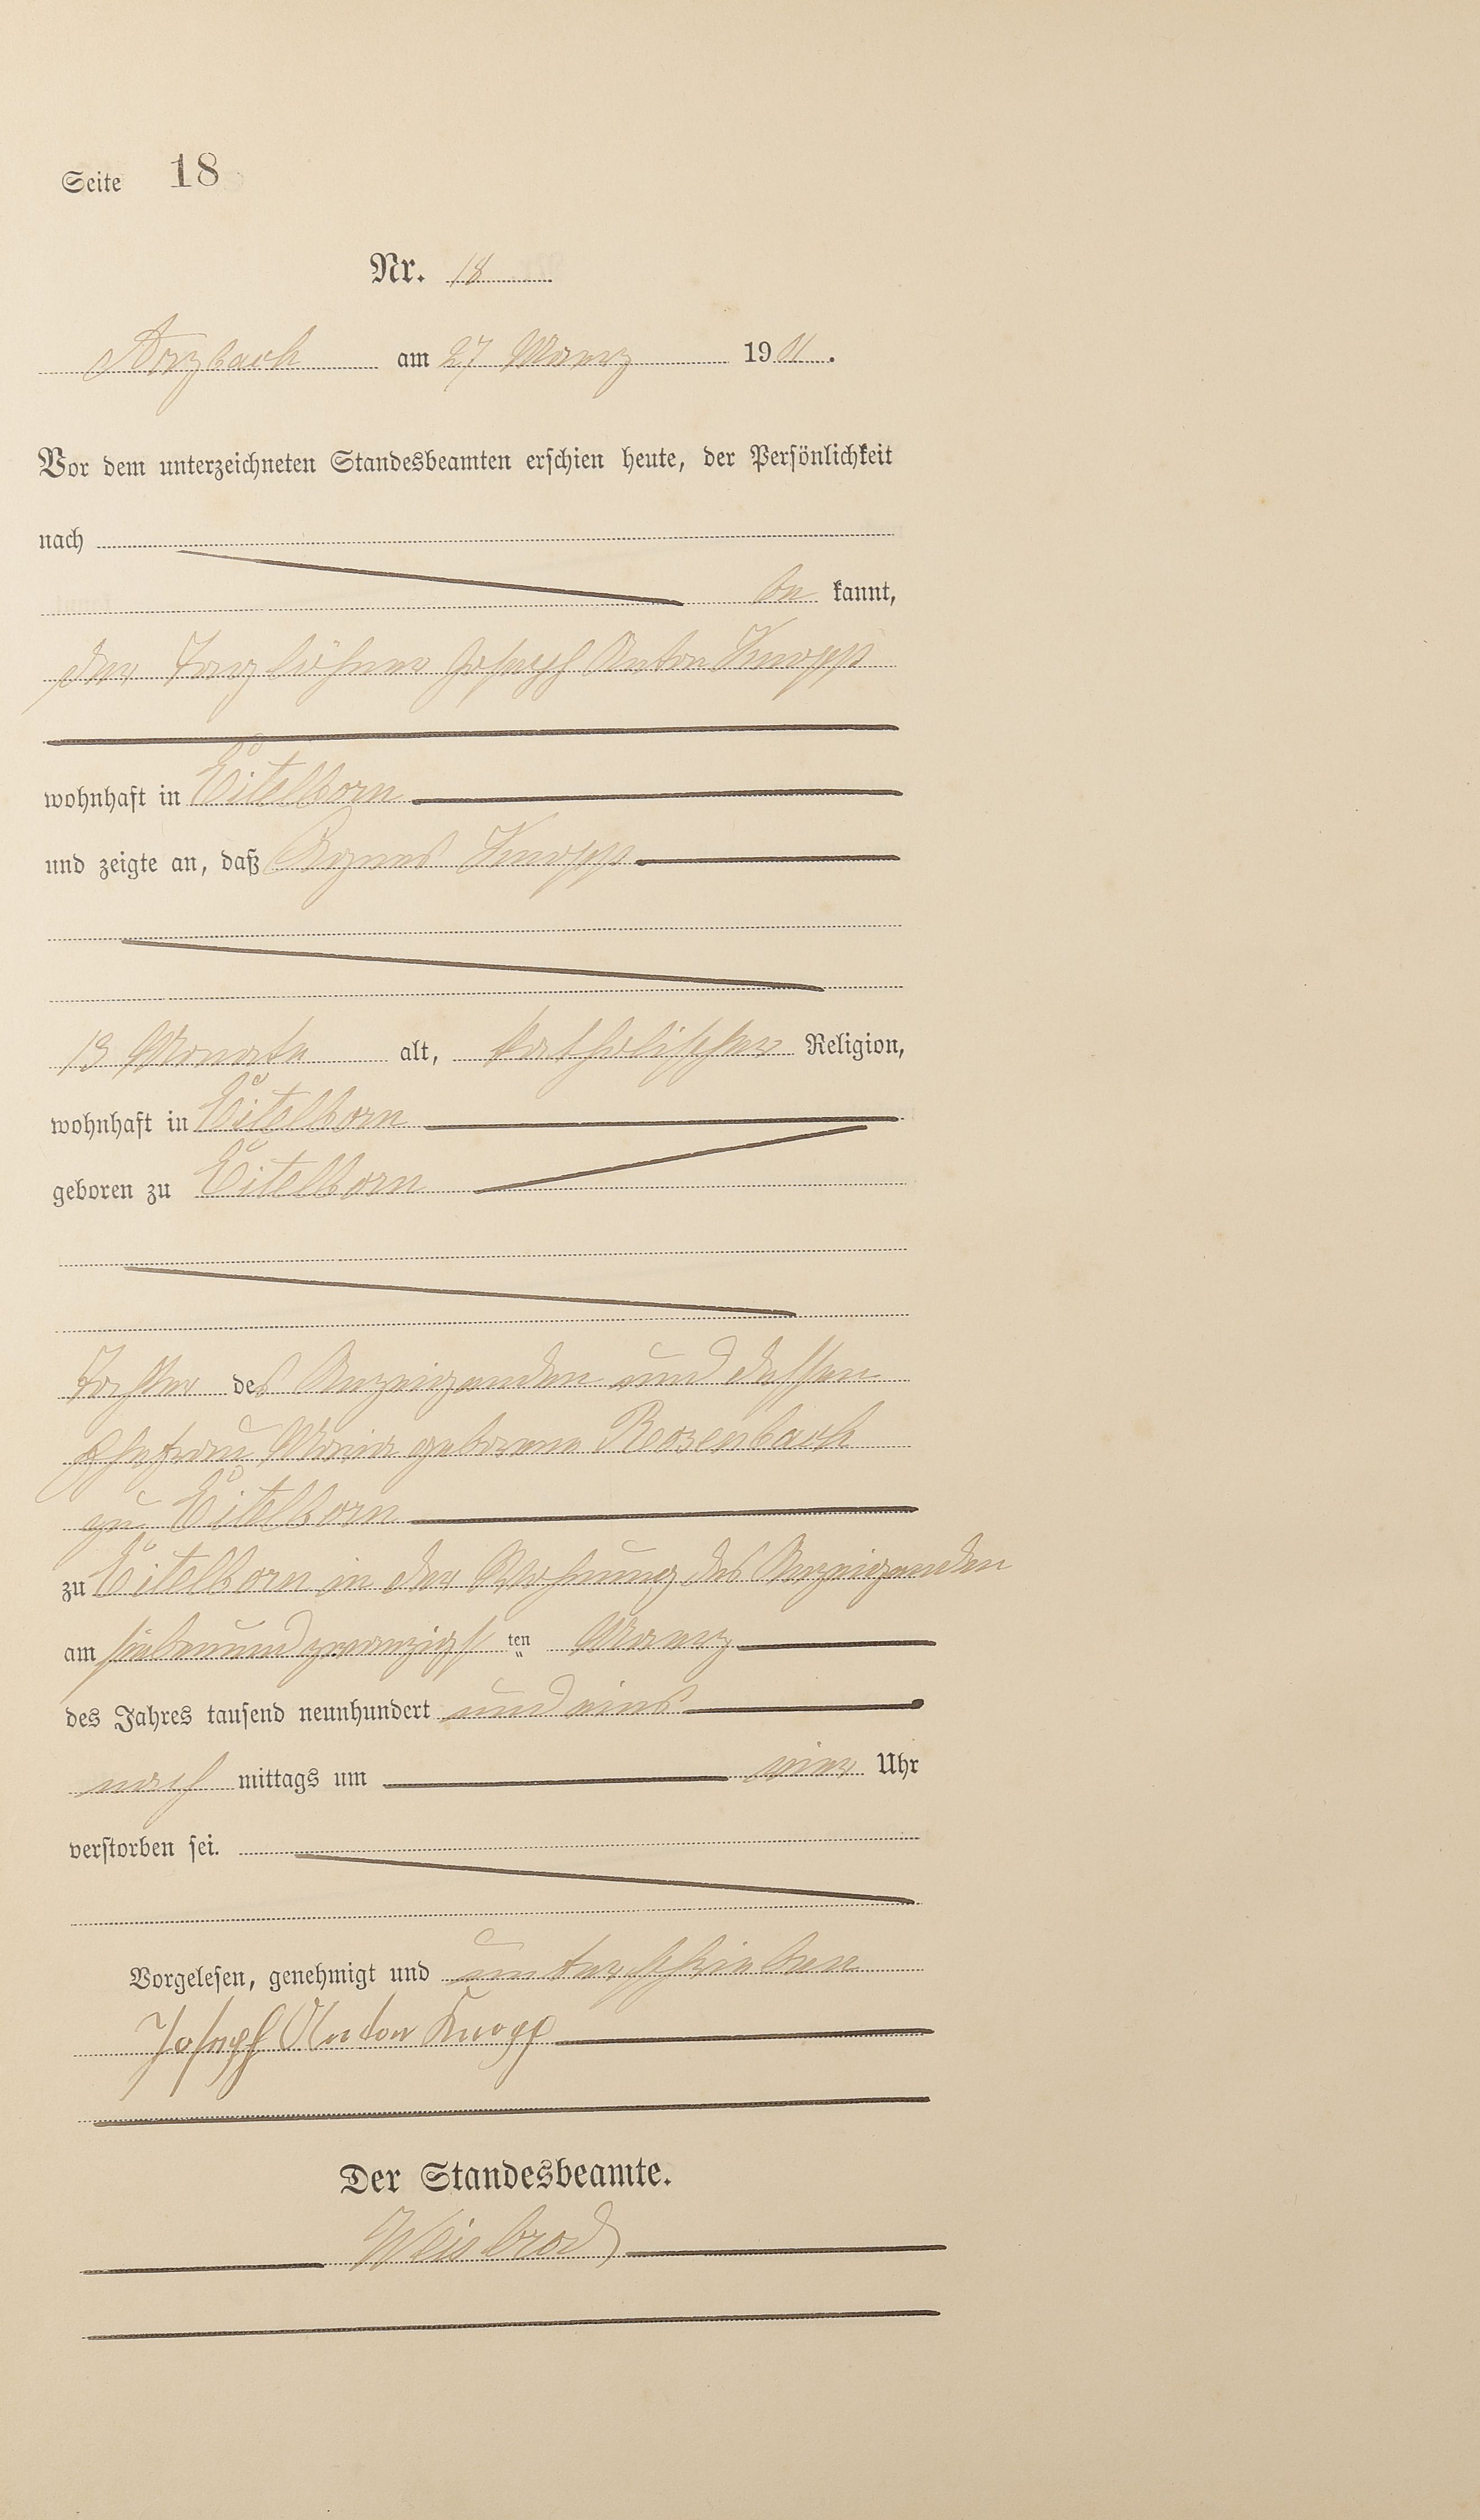 Seite 18
Nr. 18
Arzbach am 27 Maerz 1901.
Vor dem unterzeichneten Standesbeamten erschien heute, der Persönlichkeit
nach
be kannt,
der Taglöhner Joseph Anton Knopp
wohnhaft in Eitelborn
und zeigte an, daß Agnes Knopp
13 Monate alt, katholischer Religion,
wohnhaft in Eitelborn
geboren zu Eitelborn
Tochter des Anzeigenden und dessen
Ehefrau Maria geborene Rosenbach
zu Eitelborn
zu Eitelborn in der Wohnung des Anzeigenden
am siebenundzwanzigst ten Maerz
des Jahres tausend neunhundert und eins
nach mittags um Uhr
verstorben sei.
Vorgelesen, genehmigt und unterschrieben
Joseph Anton Knopp
Der Standesbeamte.
Weisbrod